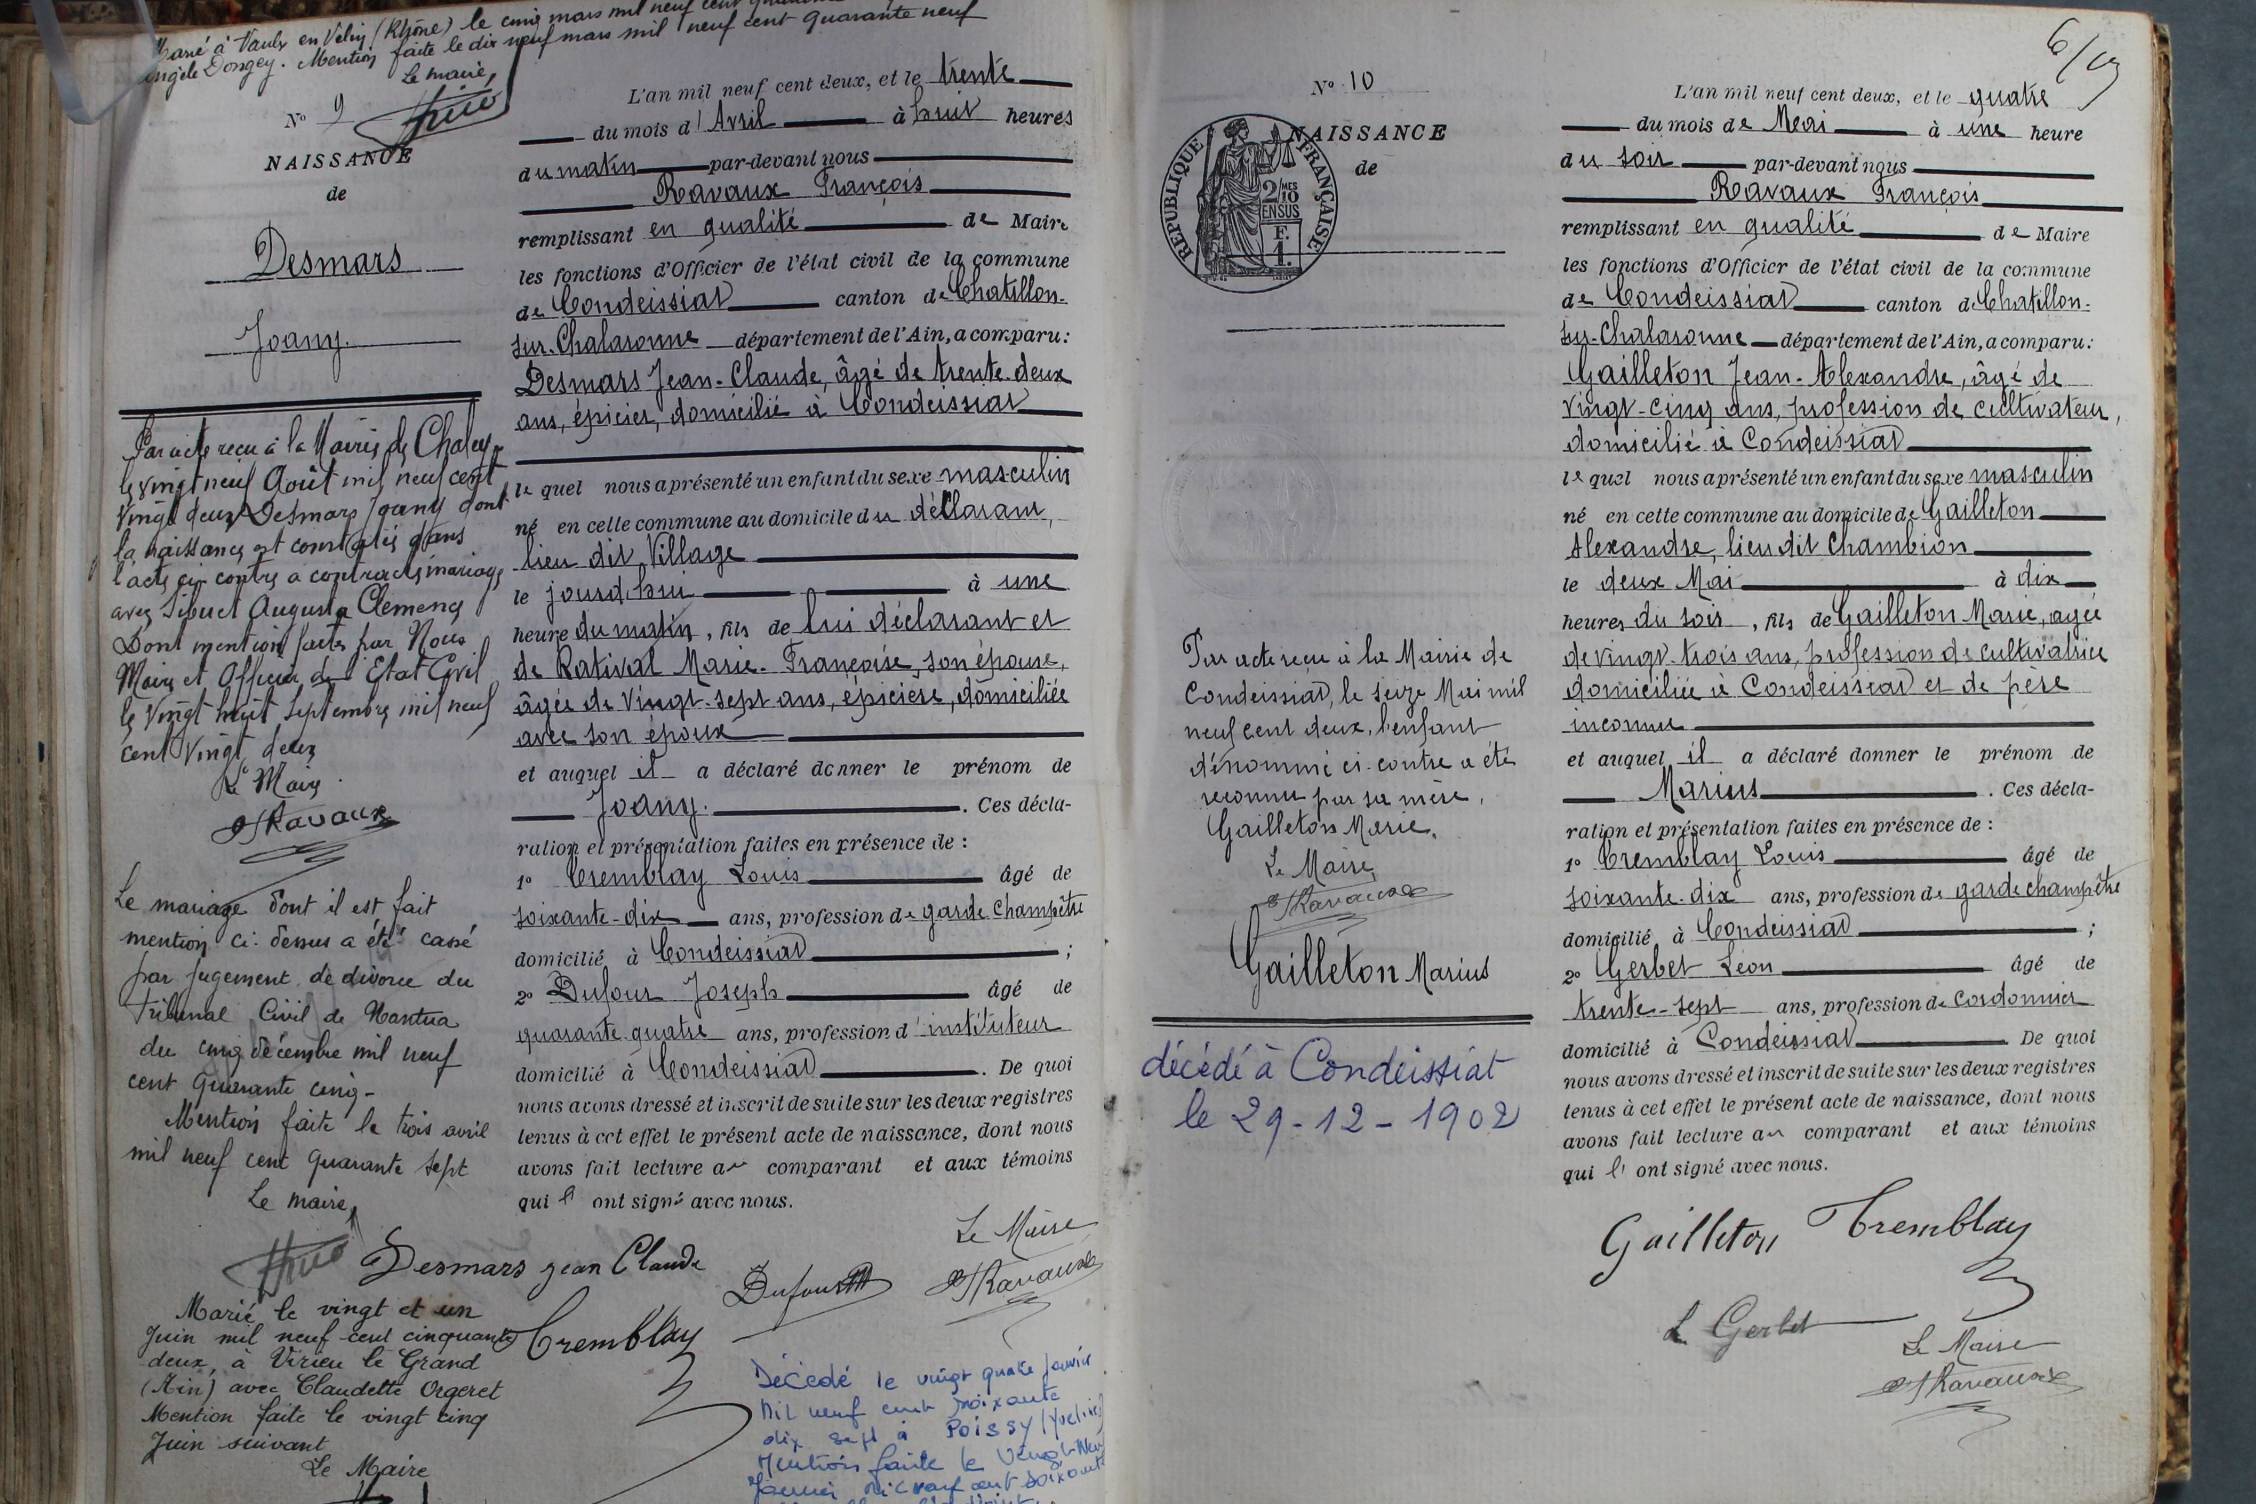 Marié à Vaulx en Velin (Rhône) le cinq mars mil neuf cent
Angèle Dongey. Mention faite le dix neuf mars mil neuf cent quarante neuf
Le maire,
N° 9
NAISSANCE
de
Desmars
Joany.
Par acte reçu à la Mairie de Chaley
le vingt neuf Août mil neuf cent
vingt deux Desmars Joany dont
la naissance est constatée dans
l'acte ci-contre a contracté mariage
avec Sibuet Augusta Clémence
Dont mention faite par Nous
Maire et Officier de l'Etat Civil
le vingt huit Septembre mil neuf
cent vingt deux
Le Maire
Ravaux
Le mariage dont il est fait
mention ci-dessus a été cassé
par jugement de divorce du
Tribunal Civil de Nantua
du cinq décembre mil neuf
cent quarante cinq-
Mention faite le trois avril
mil neuf cent quarante sept
Le maire,
Marié le vingt et un
Juin mil neuf cent cinquante
deux, à Virieu le Grand
(Ain) avec Claudette Orgeret
Mention faite le vingt cinq
Juin suivant
Le Maire
L'an mil neuf cent deux, et le trente
du mois d'Avril à huit heures
du matin par-devant nous
Ravaux François
remplissant en qualité de Maire
les fonctions d'Officier de l'état civil de la commune
de Condeissiat canton de Chatillon-
sur-Chalaronne département de l'Ain, a comparu:
Desmars Jean-Claude, âgé de trente-deux
ans, épicier, domicilié à Condeissiat
lequel nous a présenté un enfant du sexe masculin
né en cette commune au domicile du déclarant,
lieu dit Village
le jourd'hui à une
heure du matin, fils de lui déclarant et
de Rativat Marie-Françoise, son épouse,
âgée de Vingt-sept ans, épicière, domiciliée
avec son époux
et auquel il a déclaré donner le prénom de
Joany. . Ces décla-
ration et présentation faites en présence de :
1° Tremblay Louis âgé de
soixante-dix ans, profession de garde champêtre
domicilié à Condeissiat ;
2° Dufour Joseph âgé de
quarante quatre ans, profession d'instituteur
domicilié à Condeissiat . De quoi
nous avons dressé et inscrit de suite sur les deux registres
tenus à cet effet le présent acte de naissance, dont nous
avons fait lecture au comparant et aux témoins
qui l' ont signé avec nous.
Desmars Jean Claude
Dufour
Le Maire
Ravaux
Tremblay
Décédé le vingt quatre Janvier
Mil neuf cent soixante
dix sept à Poissy (Yvelines)
Mention faite le Vingt Neuf
Janvier mil neuf cent soixante
N° 10
REPUBLIQUE FRANÇAISE
2/10
MES
EN SUS
F.
1.
NAISSANCE
de
Par acte reçu à la Mairie de
Condeissiat, le seize Mai mil
neuf cent deux, l'enfant
dénommé ci-contre a été
reconnu par sa mère,
Gailleton Marie.
Le Maire
Ravaux
Gailleton Marius
décédé à Condeissiat
le 29-12-1902
L'an mil neuf cent deux, et le quatre
du mois de Mai à une heure
du soir par-devant nous
Ravaux François
remplissant en qualité de Maire
les fonctions d'Officier de l'état civil de la commune
de Condeissiat canton de Chatillon-
sur-Chalaronne département de l'Ain, a comparu:
Gailleton Jean-Alexandre, âgé de
vingt-cinq ans, profession de cultivateur,
domicilié à Condeissiat
lequel nous a présenté un enfant du sexe masculin
né en cette commune au domicile de Gailleton
Alexandre, lieu dit Chambion
le deux Mai à dix
heures du soir, fils de Gailleton Marie, agée
de vingt-trois ans, profession de cultivatrice
domiciliée à Condeissiat et de père
inconnu
et auquel il a déclaré donner le prénom de
Marius . Ces décla-
ration et présentation faites en présence de :
1° Tremblay Louis âgé de
soixante-dix ans, profession de garde champêtre
domicilié à Condeissiat ;
2° Gerbet Léon âgé de
trente-sept ans, profession de cordonnier
domicilié à Condeissiat . De quoi
nous avons dressé et inscrit de suite sur les deux registres
tenus à cet effet le présent acte de naissance, dont nous
avons fait lecture au comparant et aux témoins
qui l' ont signé avec nous.
Gailleton Tremblay
L Gerbet
Le Maire
Ravaux